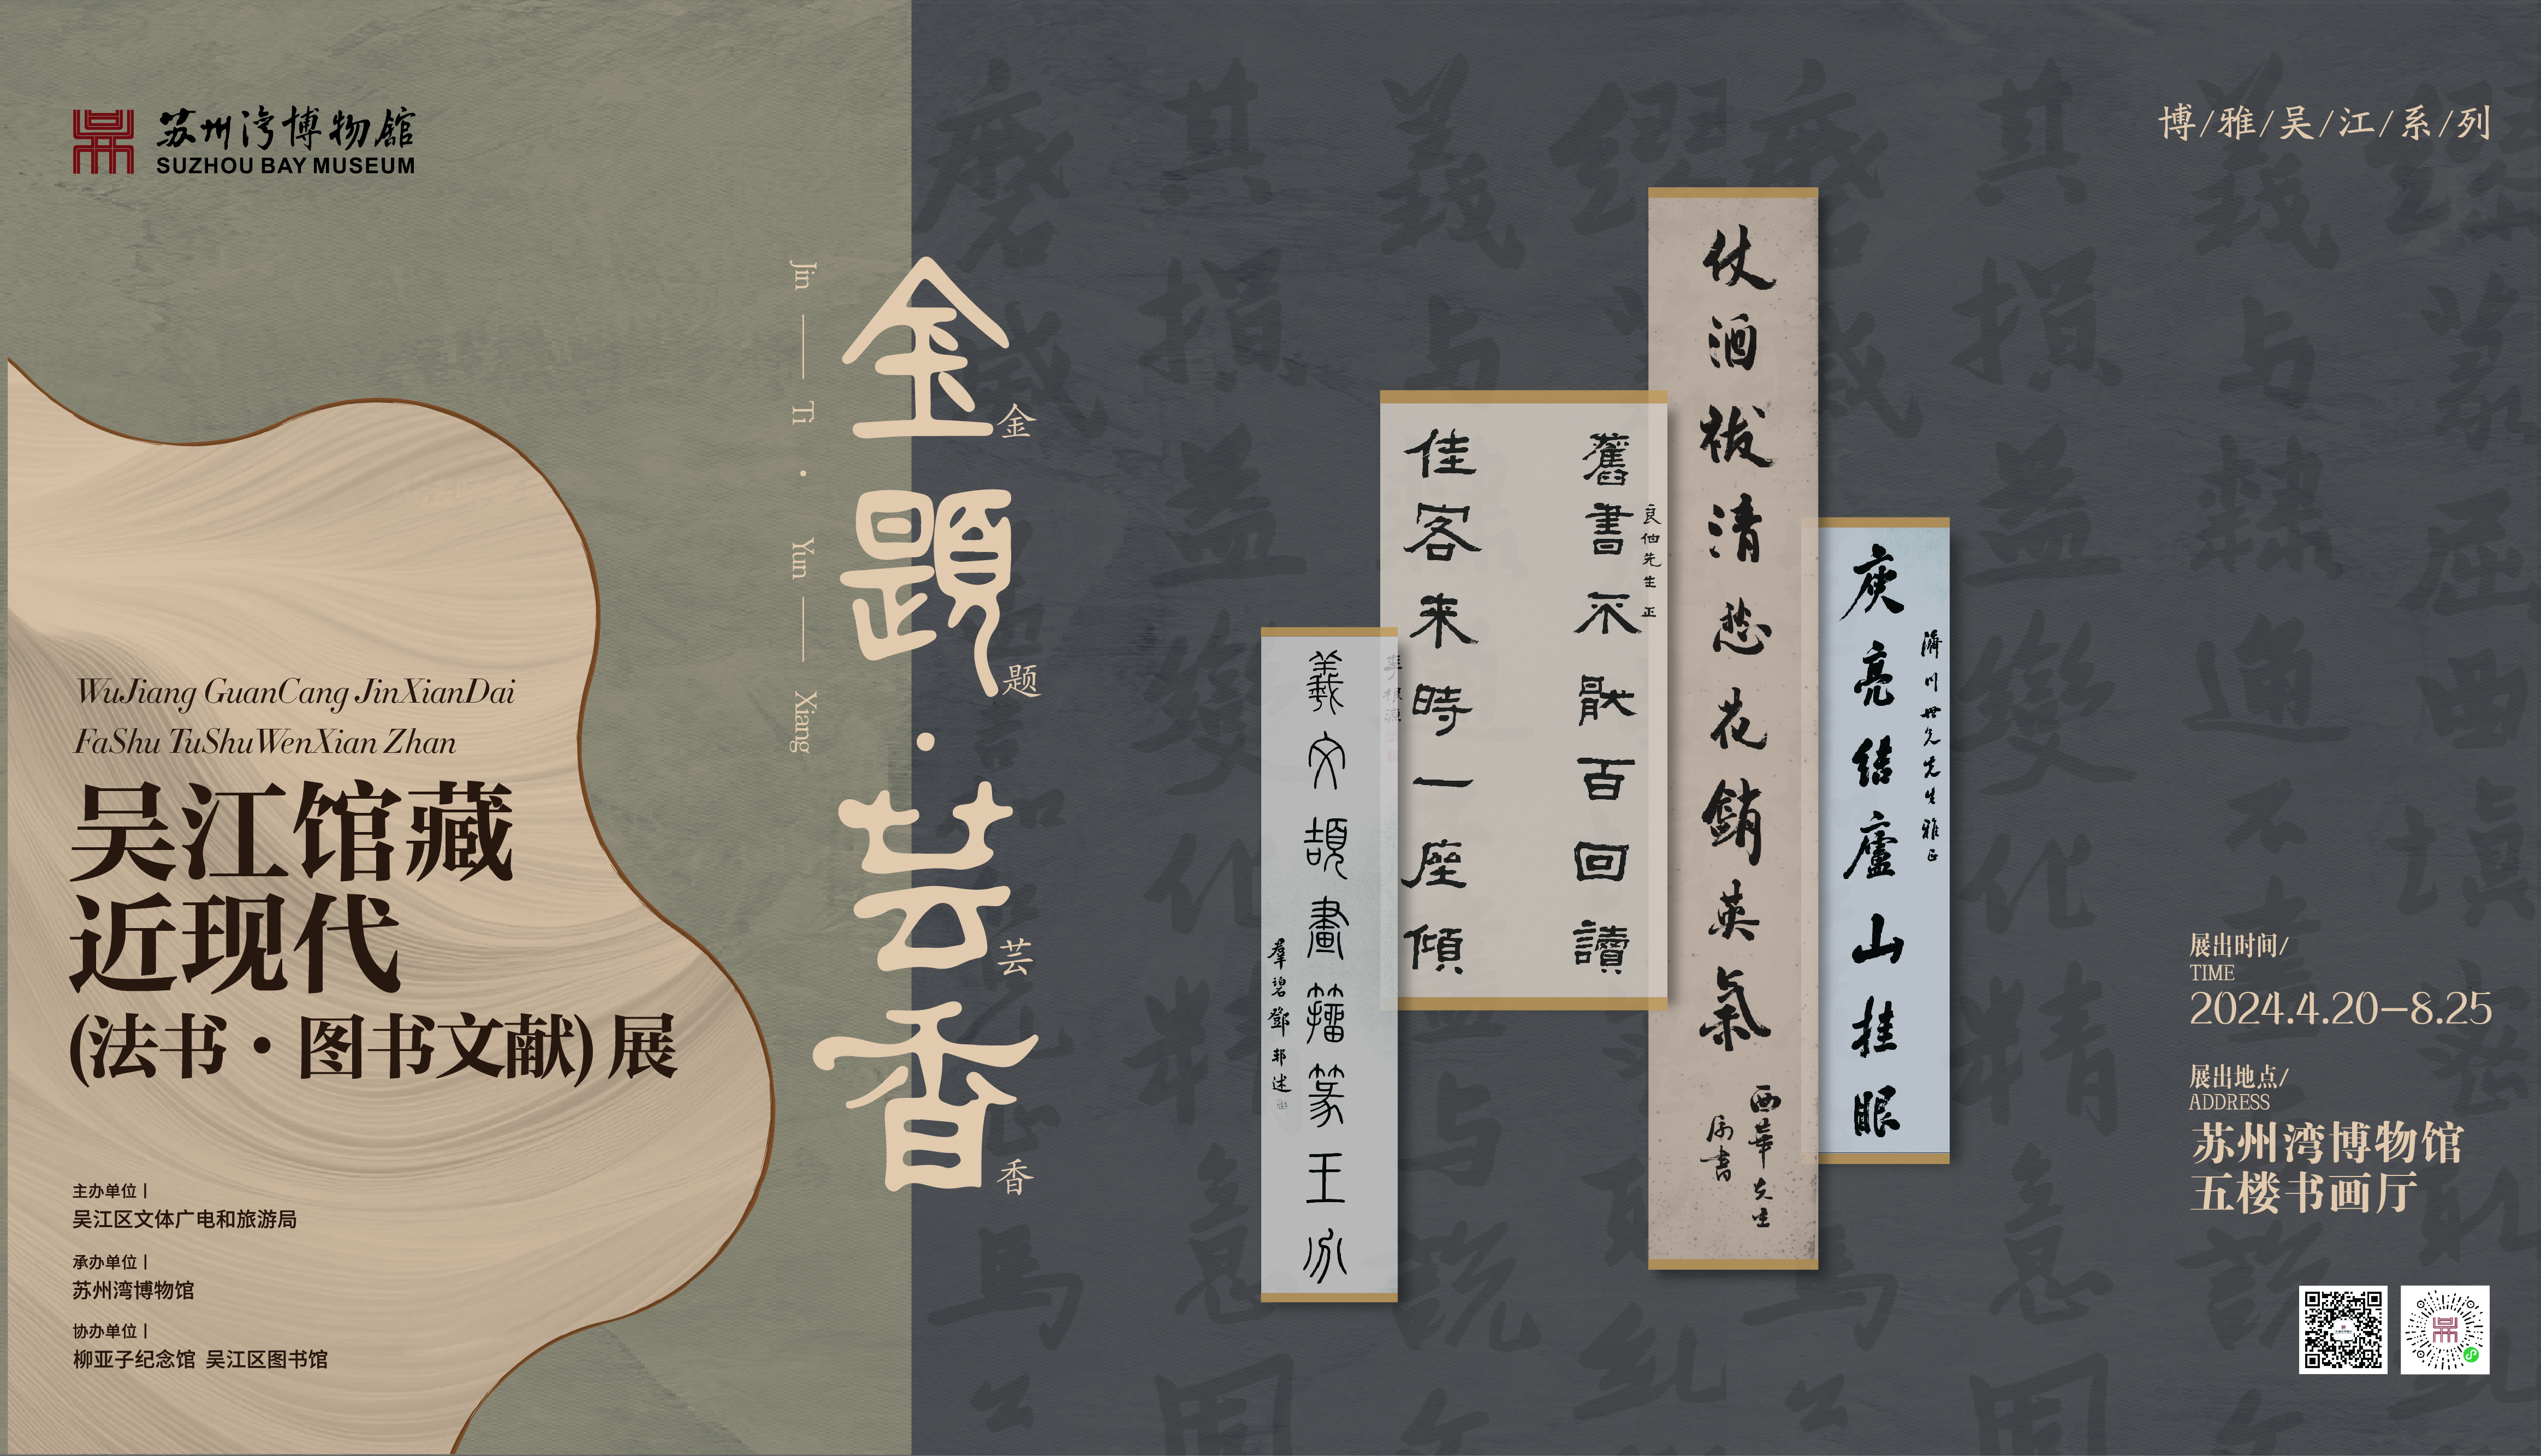 苏州湾博物馆
SUZHOU BAY MUSEUM
博/雅/吴/江/系/列
Jin — Ti · Yun — Xiang
金題·芸香
金
题
芸
香
WuJiang GuanCang JinXianDai
FaShu TuShuWenXian Zhan
吴江馆藏
近现代
(法书·图书文献)展
主办单位丨
吴江区文体广电和旅游局
承办单位丨
苏州湾博物馆
协办单位丨
柳亚子纪念馆 吴江区图书馆
濟川世兄先生雅正
庾亮結廬山挂眼
仗酒祓清愁花銷英氣
西華先生
屬書
良伯先生正
舊書不厭百回讀
佳客来時一座傾
李根源
羲文頡畫籀篆王
羣碧鄧邦述
展出时间/
TIME
2024.4.20—8.25
展出地点/
ADDRESS
苏州湾博物馆
五楼书画厅